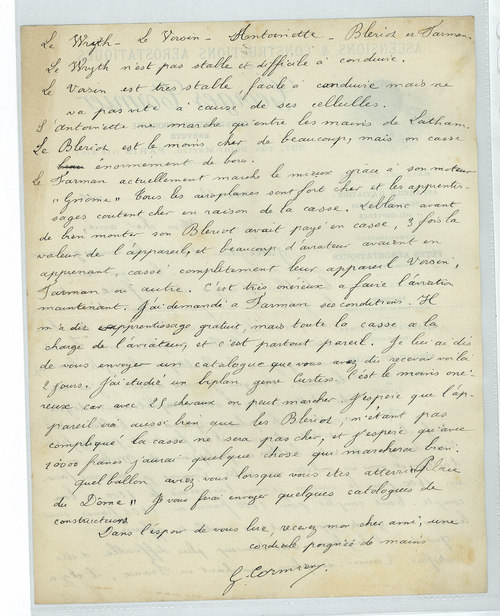 Le Wryth - Le Vorsin - Antoinette - Bleriot et Farman.
Le Wryth n'est pas stable et difficile à conduire.
Le Vorsin est très stable, facile à conduire mais ne
va pas vite à cause de ses cellulles.
L'Antoinette ne marche qu'entre les mains de Latham.
Le Bleriot est le moins cher de beaucoup, mais on casse
énormement de bois.
Le Farman actuellement marche le mieux grace à son moteur
"Gnôme" Tous les aeroplanes sont fort cher et les apprentis-
sages coutent cher en raison de la casse. Leblanc avant
de bien monter son Bleriot avait payé en casse, 3 fois la
valeur de l'appareil, et beaucoup d'aviateur avaient en
apprenant, cassé complètement leur appareil Vorsin,
Farman ou autre. C'est très onéreux a faire l'aviation
maintenant. J'ai demandé a Farman ses conditions. Il
m'a dit apprentissage gratuit, mais toute la casse a la
charge de l'aviateur, et c'est partout pareil. Je lui ai dis
de vous envoyer un catalogue que vous avez du recevoir voila
2 jours. J'ai etudié un biplan genre Curtiss. C'est le moins oné-
reux car avec 25 chevaux on peut marcher. J'espere que l'ap-
pareil ira aussi bien que les Bleriot, n'étant pas
compliqué la casse ne sera pas cher, et j'espère qu'avec
10000 francs j'aurai quelque chose qui marchera bien.
Quel ballon aviez vous lorsque vous etes atterri "place
du Dôme" Je vous ferai envoyer quelques catalogues de
constructeurs
Dans l'espoir de vous lire, recevez mon cher ami, une
cordiale poignée de mains
G. Cormier